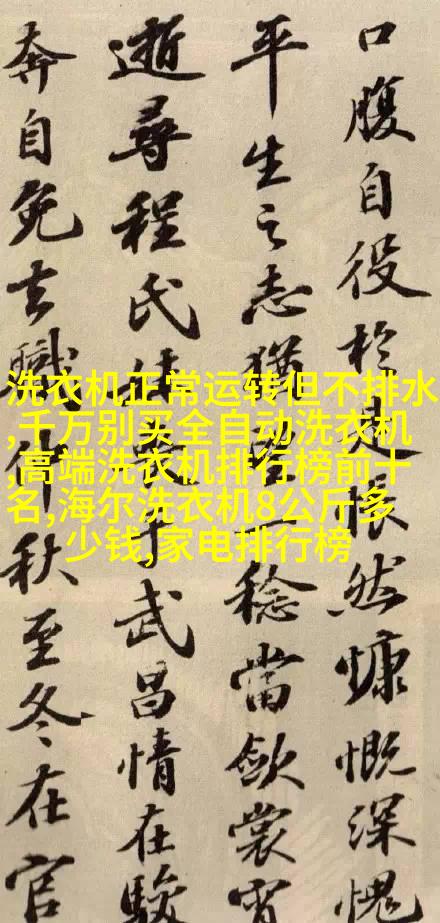 口腹自役於是悵然慷慨深愧
平生之志猶一稔當斂裳宵
逝尋程氏妹于武昌情在駿
奔自免去職仲秋至冬在官
洗衣机正常运转但不排水
,千万别买全自动洗衣机
,高端洗衣机排行榜前十
名,海尔洗衣机8公斤多
少钱,家电排行榜